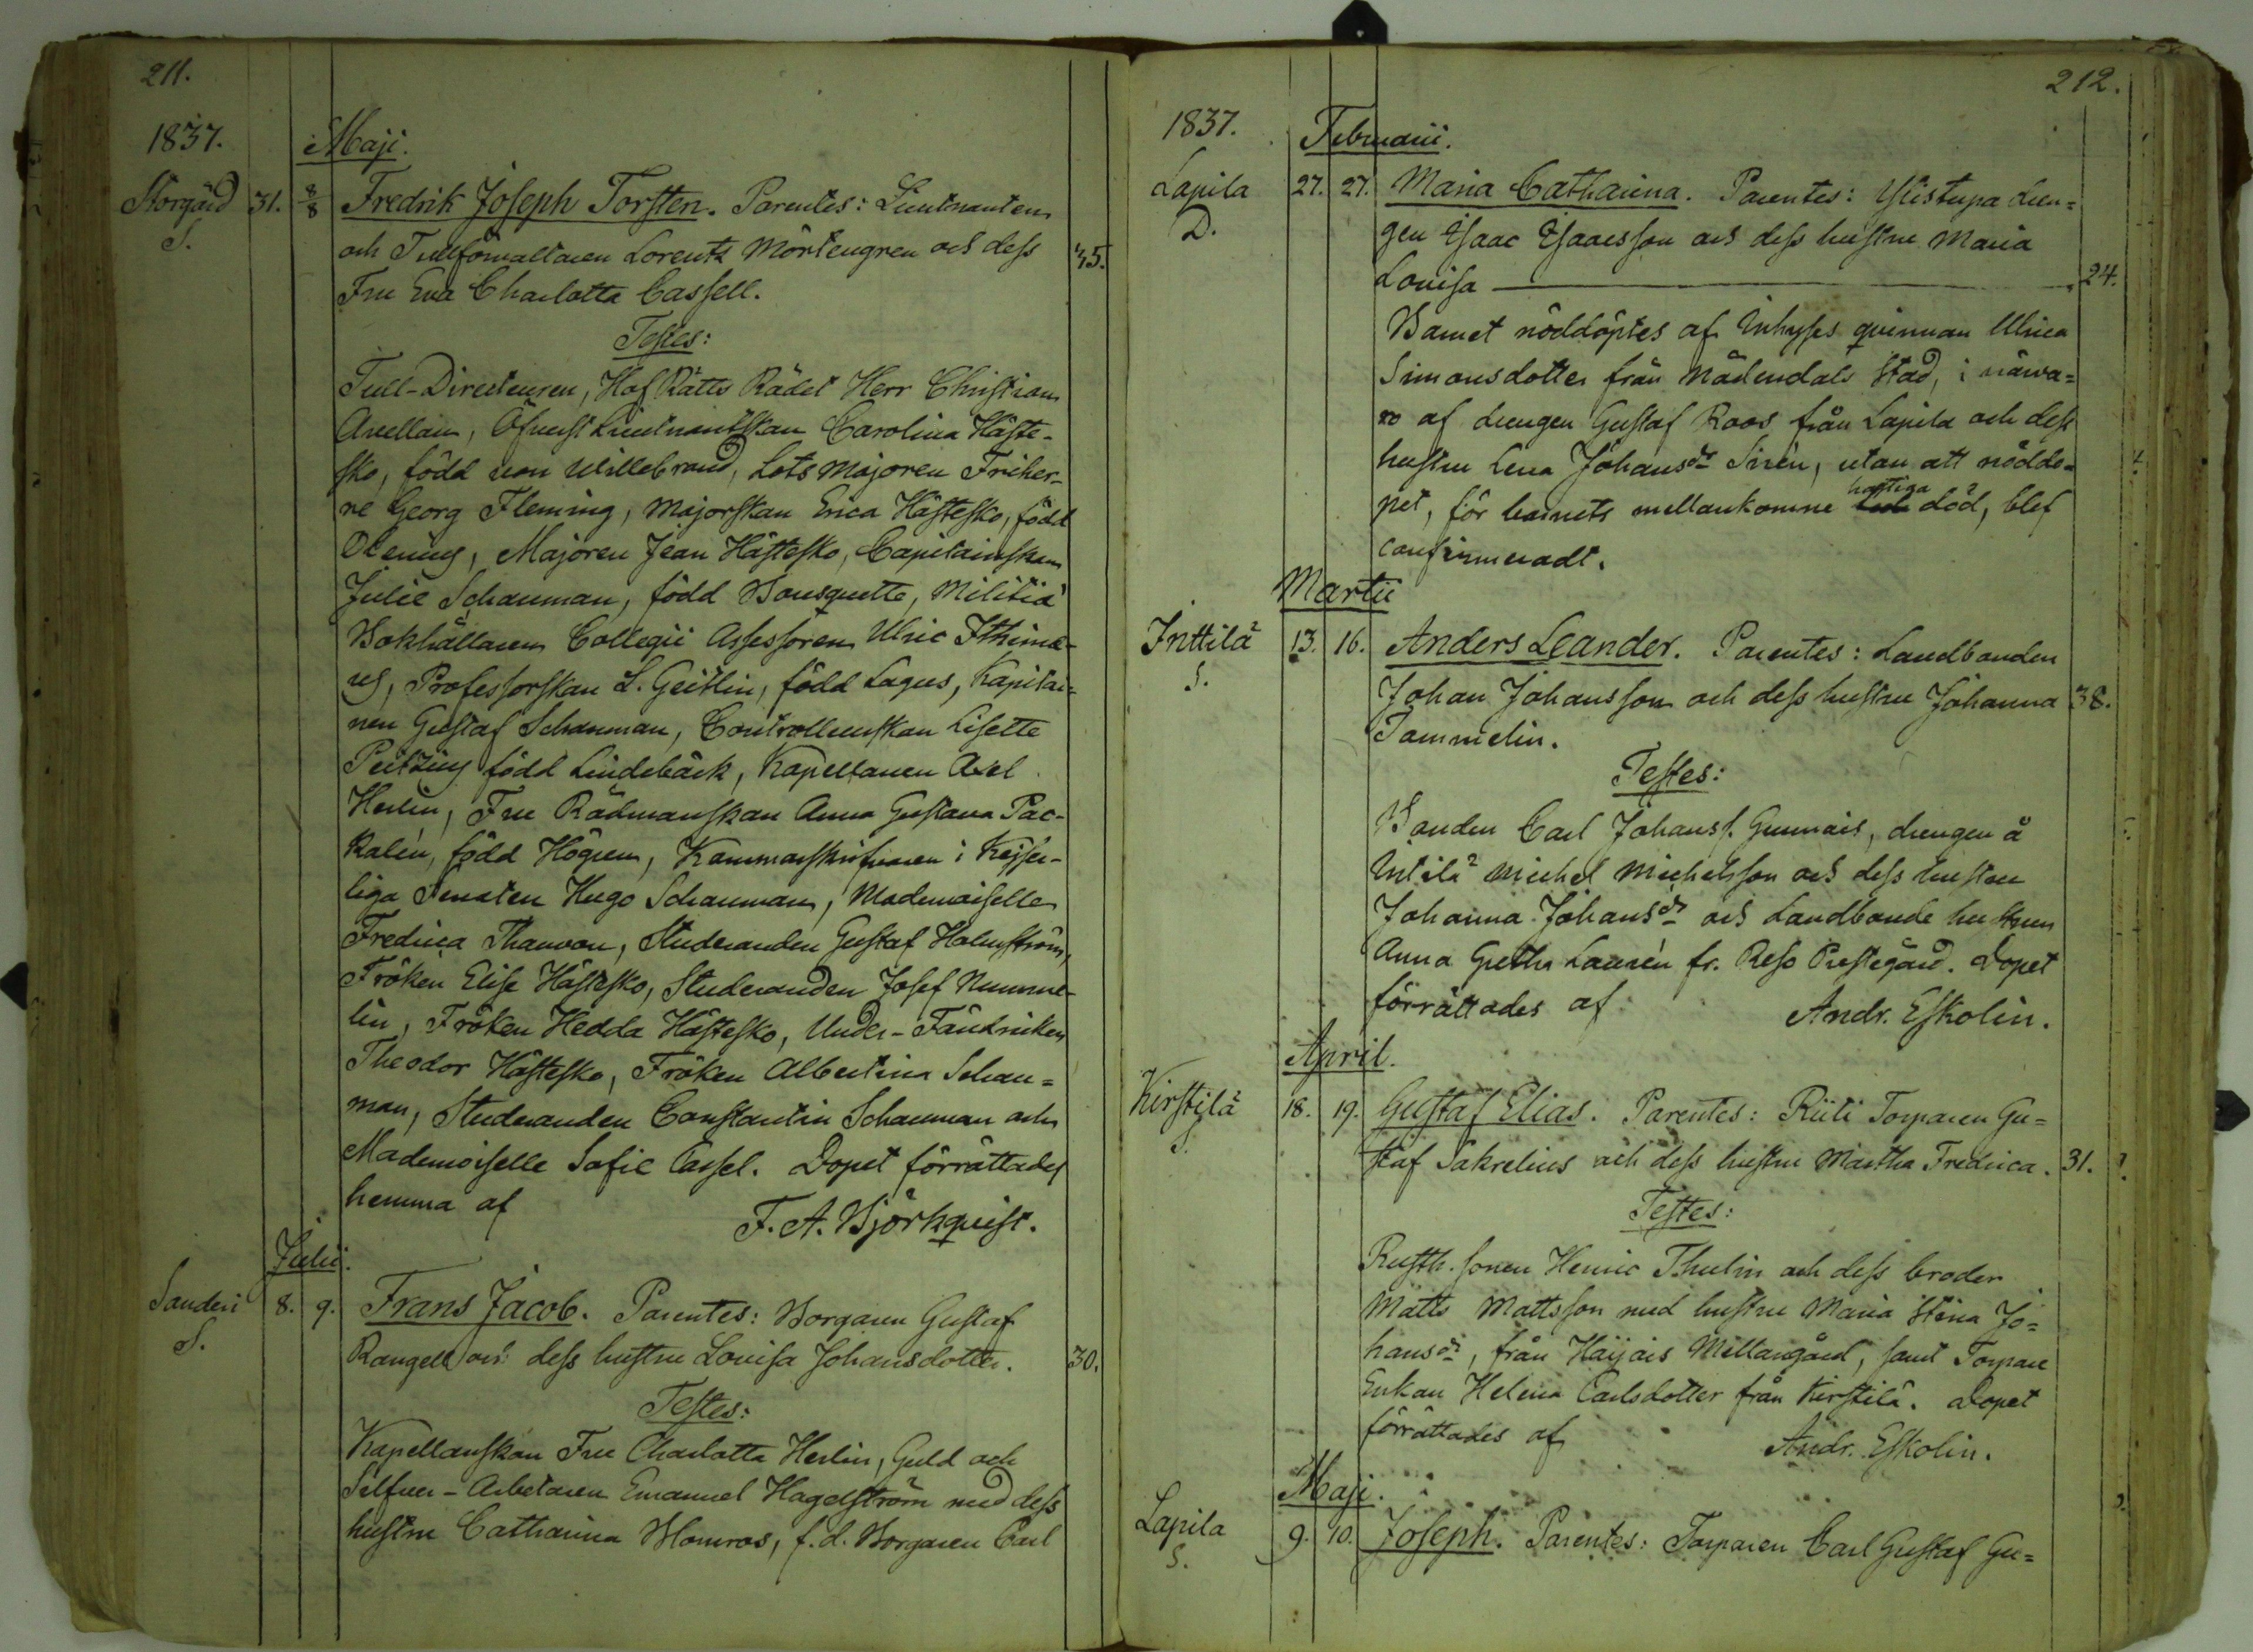 211.
1837.
Maji.
Storgård 31. 8/8 Fredrik Joseph Torsten. Parentes: Lieutnanten
S.
och Tullförvaltaren Lorentz Mörtengren och dess 45.
Fru Eva Charlotta Cassell.
Testes:
Tull-Directeuren, Hof Rätts Rådet Herr Christian
Avellan, Öfverst Lieutnantskan Carolina Häste-
sko, född von Willebrand, Lots Majoren Friher-
re Georg Fleming, Majorskan Erica Hästesko, född
Majoren Jean Hästesko, Capitainskan
Julie Schauman, född Bousquette, Militiæ
Bokhållaren Collegii Assessoren Ulric Ithimæ-
us, Professorskan L. Geitlin, född Lagus, Kapitai-
nen Gustaf Schauman, Controlleurskan Lisette
Peitzius född Lindebäck, Kapellanen Axel
Herlin, Fru Rådmanskan Anna Gustava Pac-
kalén, född Högren, Kammarskrifvaren i Kejser-
liga Senaten Hugo Schauman, Mademoiselle
Fredrica Thauvon, Studeranden Gustaf Holmström,
Fröken Elise Hästesko, Studeranden Josef Numme-
lin, Fröken Hedda Hästesko, Under-Fändriken
Theodor Hästesko, Fröken Albertina Schau=
man, Studeranden Constantin Schauman och
Mademoiselle Sofie Cassel. Dopet förrättades
hemma af F. A. Björkqvist.
Julii.
Sanderi 8. 9. Frans Jacob. Parentes: Borgaren Gustaf
S.
Rangell och dess hustru Louisa Johansdotter. 30.
Testes:
Kapellanskan Fru Charlotta Herlin, Guld och
Silfver-Arbetaren Emanuel Hagelström med dess
hustru Catharina Blomros, f. d. Borgaren Carl
212.
1837.
Februarii.
Lapila 27. 27. Maria Catharina. Parentes: Ylistupa dren=
D.
gen Isaac Isaacsson och dess hustru Maria
Louisa 24.
Barnet nöddöptes af Inhyses qvinnan Ulrica
Simonsdotter från Nådendals Stad, i närva=
ro af drengen Gustaf Roos från Lapila och dess
hustru Lena Johansdr Sirén, utan att nöddo=
pet, för barnets mellankomne hastiga död, blef
confirmeradt.
Martii
Inttilä 13. 16. Anders Leander. Parentes: Landbonden
S.
Johan Johansson och dess hustru Johanna 38.
Tammelin.
Testes:
Bonden Carl Johanss. Gunnais, drengen å
Intilä Michel Michelsson och dess hustru
Johanna Johansdr och Landbonde hustrun
Anna Gretha Laurén fr. Reso Prestegård. Dopet
förrättades af Andr. Eskolin.
April.
Kirstilä 18. 19. Gustaf Elias. Parentes: Riiti Torparen Gu=
S.
staf Sakrelius och dess hustru Martha Fredrica. 31.
Testes:
Rusth. sonen Henric Thulin och dess broder
Matts Mattsson med hustru Maria Stina Jo=
hansdr, från Haijais Mellangård, samt Torpare
Enkan Helena Carlsdotter från Kirstilä. Dopet
förrättades af Andr. Eskolin.
Maji.
Lapila 9. 10. Joseph. Parentes: Torparen Carl Gustaf Gu=
S.